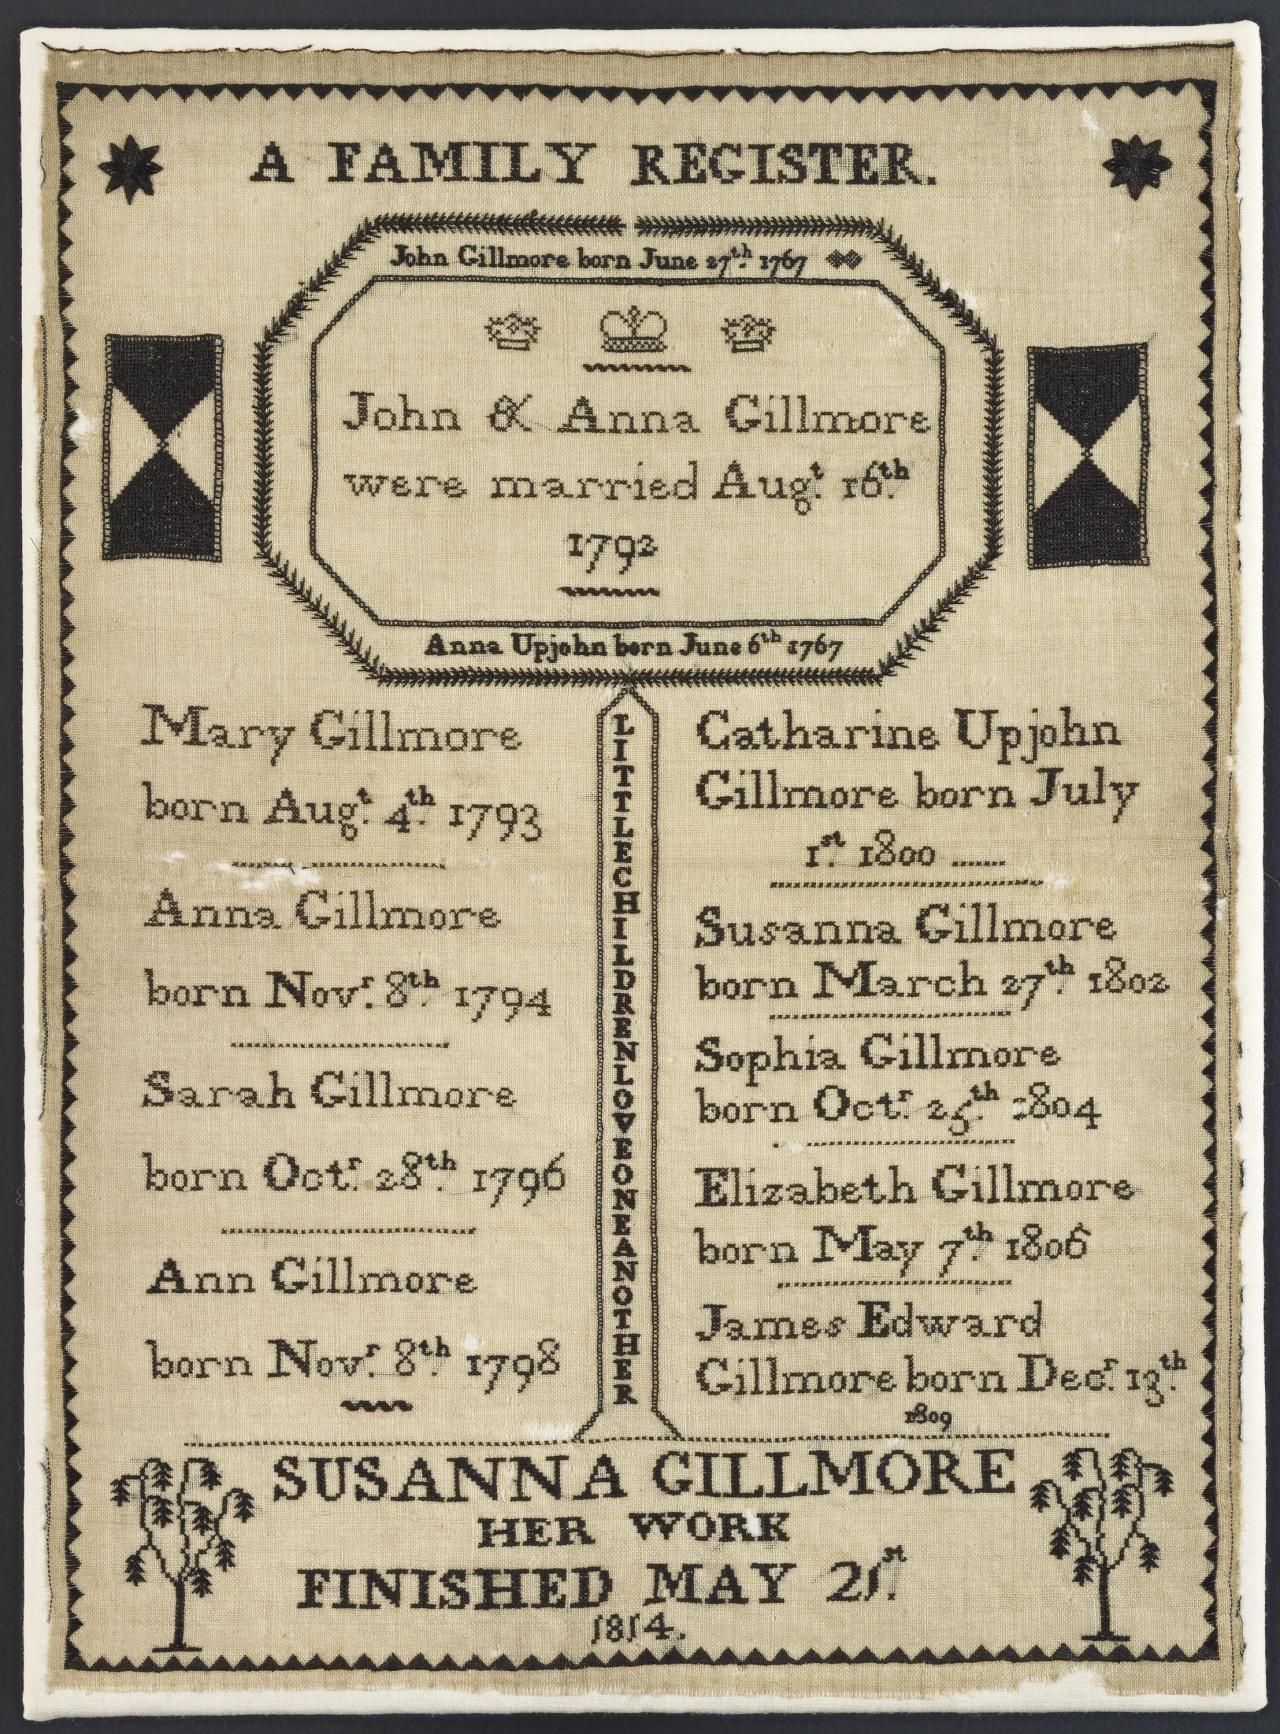 A FAMILY REGISTER.
John Gillmore born June 27th. 1767
John & Anna Gillmore
were married Augt. 16th.
1792
Anna Upjohn born June 6th 1767
Mary Gillmore
born Augt. 4th. 1793
Anna Gillmore
born Novr. 8th. 1794
Sarah Gillmore
born Octr. 28th. 1796
Ann Gillmore
born Novr. 8th. 1798
LITTLECHILDRENLOVEONEANOTHER
Catharine Upjohn
Gillmore born July
1st. 1800 ......
Susanna Gillmore
born March 27th. 1802
Sophia Gillmore
born Octr. 25th. 1804
Elizabeth Gillmore
born May 7th. 1806
James Edward
Gillmore born Decr. 13th.
1809
SUSANNA GILLMORE
HER WORK
FINISHED MAY 21st.
1814.